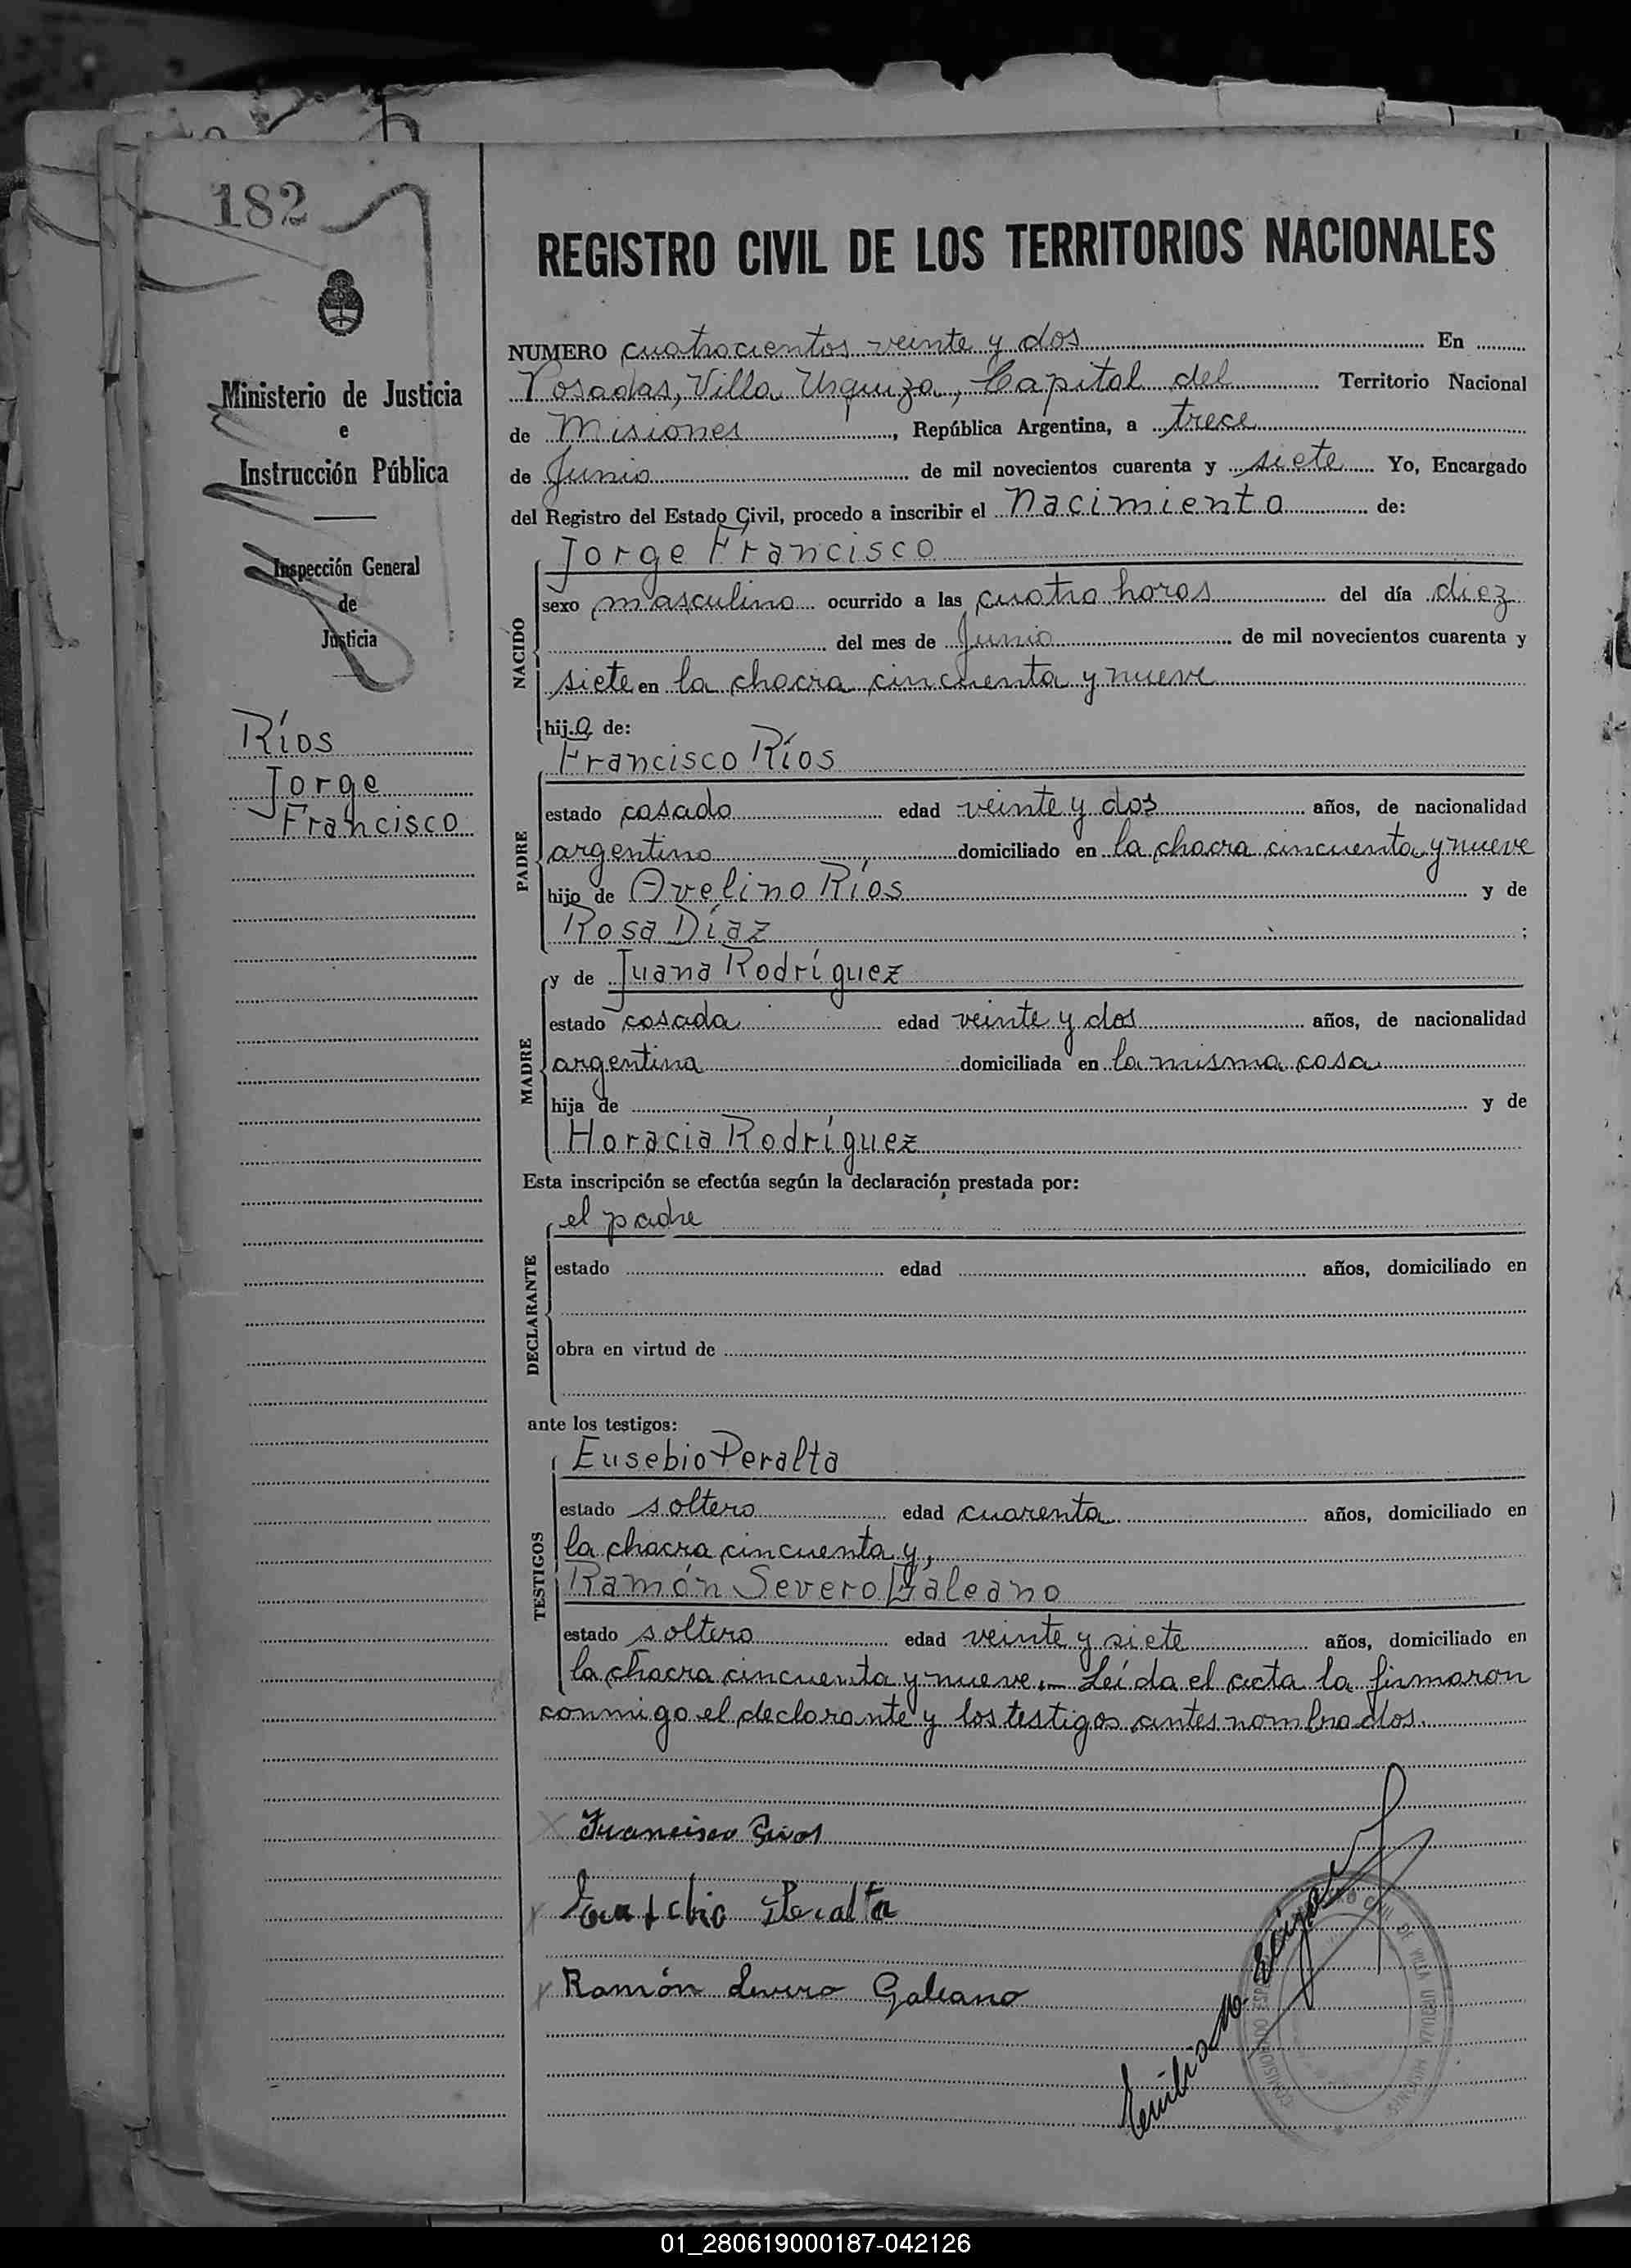 182
REGISTRO CIVIL DE LOS TERRITORIOS NACIONALES
Ministerio de Justicia
e
Instrucción Pública
Inspección General
de
Justicia
Ríos
Jorge
Francisco
NUMERO cuatrocientos veinte y dos En
Posadas, Villa Urquiza, Capital del Territorio Nacional
de Misiones, República Argentina, a trece
de Junio de mil novecientos cuarenta y siete Yo, Encargado
del Registro del Estado Civil, procedo a inscribir el Nacimiento de:
NACIDO
Jorge Francisco
sexo masculino ocurrido a las cuatro horas del día diez
del mes de Junio de mil novecientos cuarenta y
siete en la chacra cincuenta y nueve
hijo de:
PADRE
Francisco Ríos
estado casado edad veinte y dos años, de nacionalidad
argentino domiciliado en la chacra cincuenta y nueve
hijo de Avelino Ríos y de
Rosa Díaz ;
MADRE
y de Juana Rodríguez
estado casada edad veinte y dos años, de nacionalidad
argentina domiciliada en la misma casa
hija de y de
Horacia Rodríguez
Esta inscripción se efectúa según la declaración prestada por:
DECLARANTE
el padre
estado edad años, domiciliado en
obra en virtud de
ante los testigos:
TESTIGOS
Eusebio Peralta
estado soltero edad cuarenta años, domiciliado en
la chacra cincuenta y,
Ramón Severo Galeano
estado soltero edad veinte y siete años, domiciliado en
la chacra cincuenta y nueve.— Leída el acta la firmaron
conmigo el declarante y los testigos antes nombrados.
Francisco
Peralta
Ramón Severo Galeano
Emiliano
CIVIL DE VILLA URQUIZA MISIONES
01_280619000187-042126